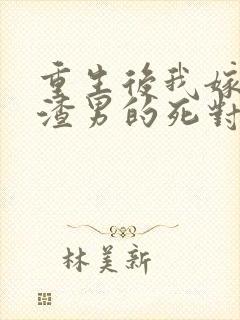 重生後我嫁
渣男的死對
林美新